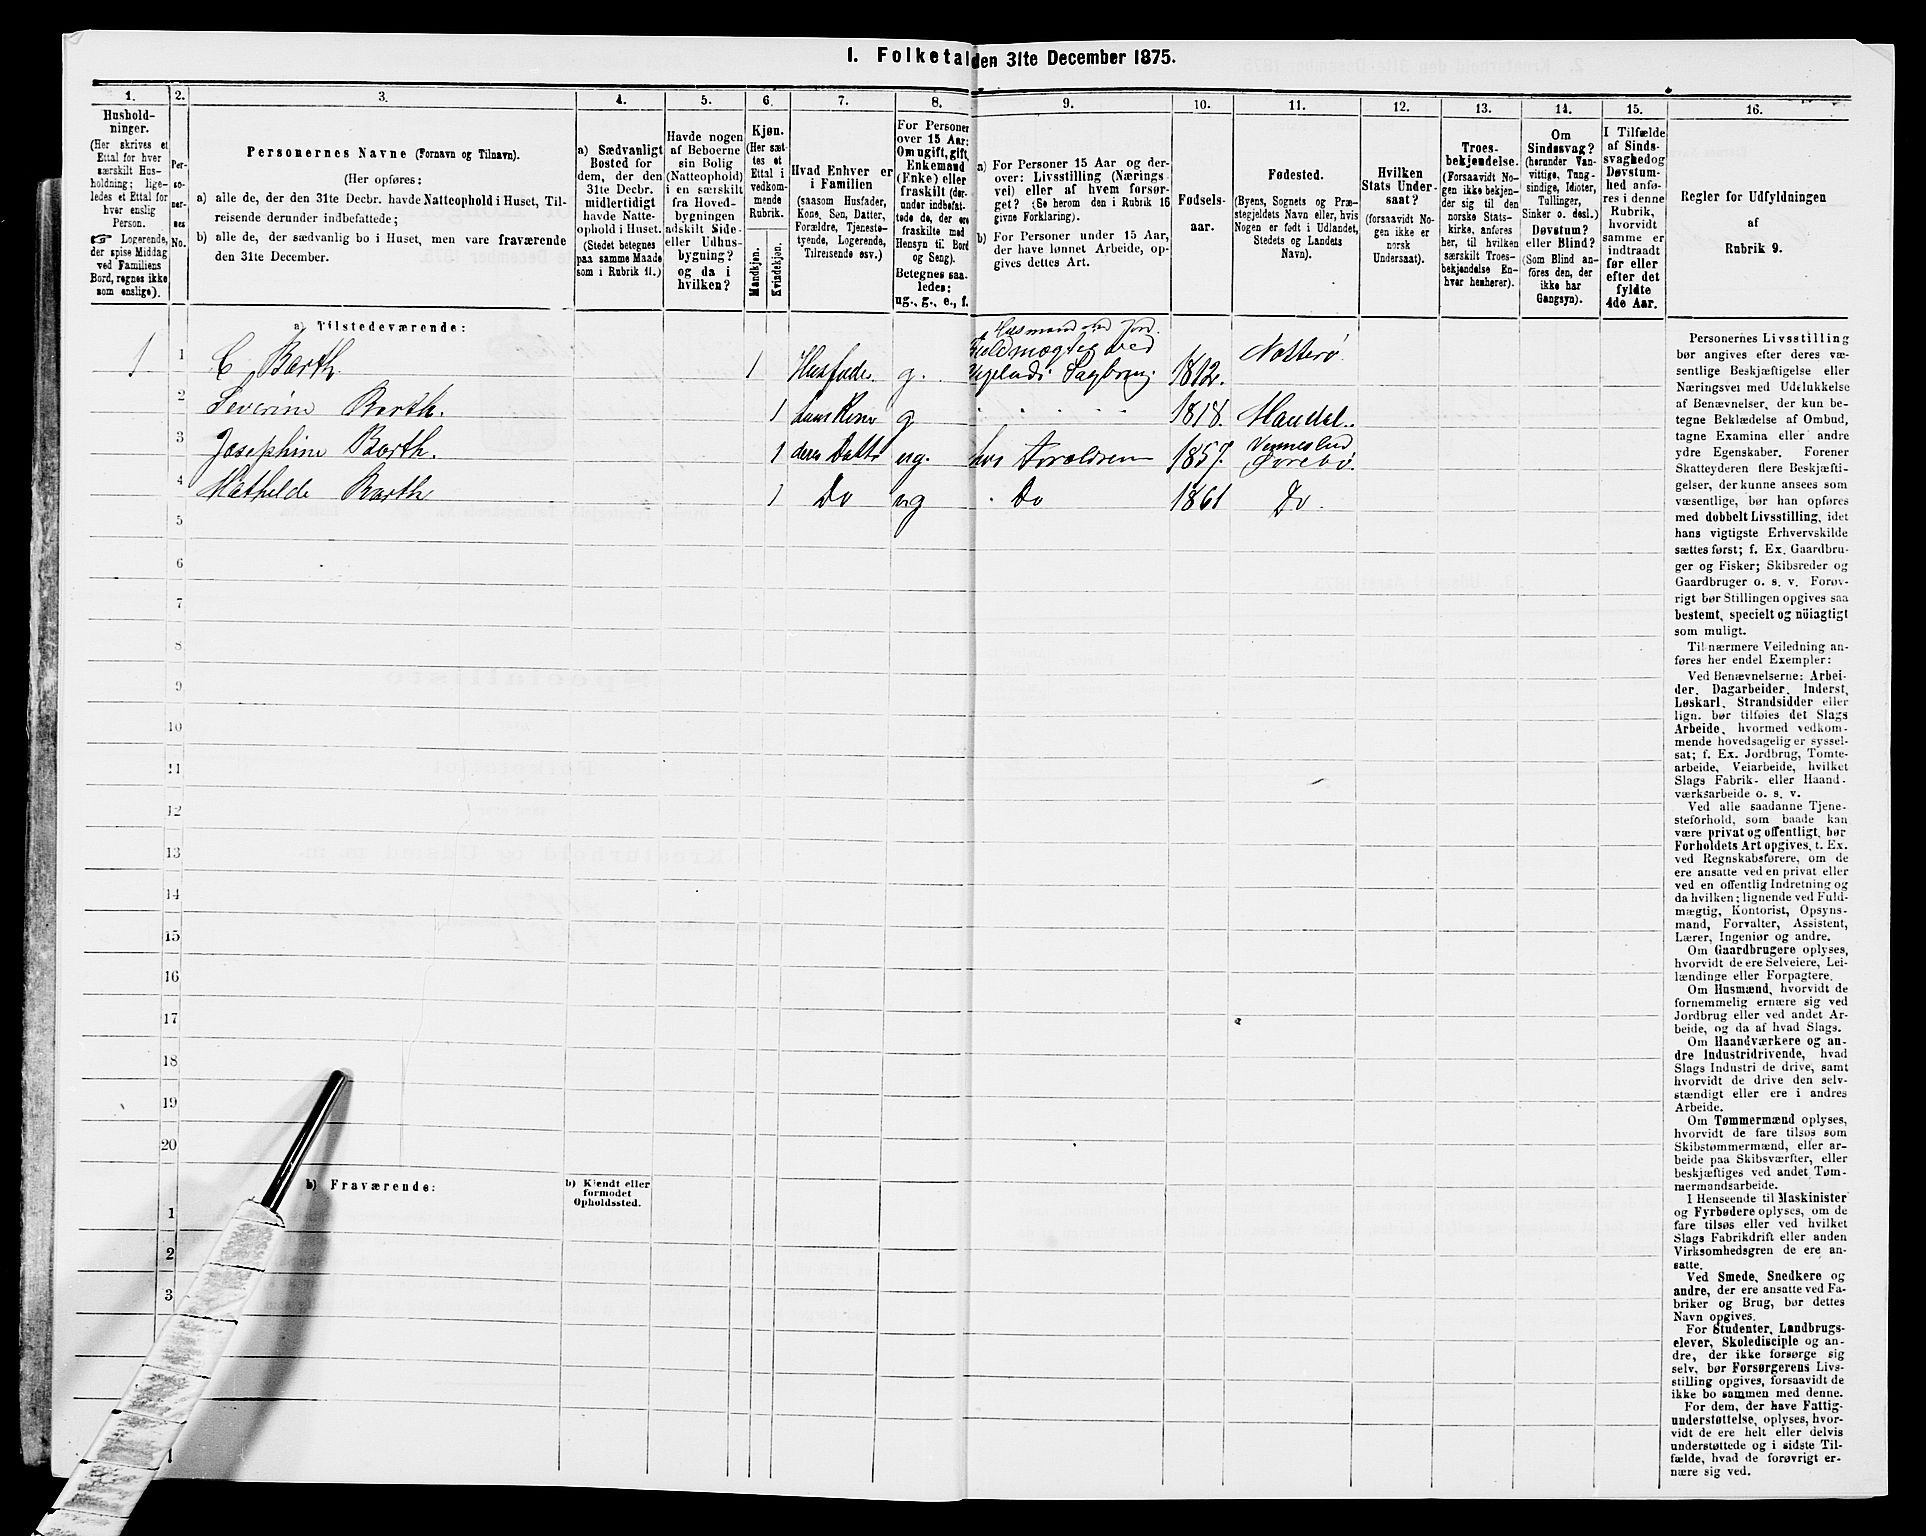 I. Folketal den 31te December 1875.
1. 2. 3. 4. 5. 6. 7. 8. 9. 10. 11. 12. 13. 14. 15. 16.
Hushold-
ninger.
(Her skrives et
Ettal for hver
særskilt Hus-
holdning; lige-
ledes et Ettal for
hver enslig
Person.
☞ Logerende,
der spise Middag
ved Familiens
Bord, regnes ikke
som enslige).
Per-
so-
ner-
nes
No.
Personernes Navne (Fornavn og Tilnavn).
(Her opføres:
a) alle de, der den 31te Decbr. havde Natteophold i Huset, Til-
reisende derunder indbefattede;
b) alle de, der sædvanlig bo i Huset, men vare fraværende
den 31te December.
a) Sædvanligt
Bosted for
dem, der den
31te Decbr.
midlertidigt
havde Natte-
ophold i Huset.
(Stedet betegnes
paa samme Maade
som i Rubrik 11.)
Havde nogen
af Beboerne
sin Bolig
(Natteophold)
i en særskilt
fra Hoved-
bygningen
adskilt Side-
eller Udhus-
bygning?
og da i
hvilken?
Kjøn.
(Her sæt-
tes et
Ettal i
vedkom-
mende
Rubrik.
Mandkjøn.
Kvindekjøn.
Hvad Enhver er
i Familien
(saasom Husfader,
Kone, Søn, Datter,
Forældre, Tjeneste-
tyende, Logerende,
Tilreisende osv.)
For Personer
over 15 Aar:
Om ugift, gift,
Enkemand
(Enke) eller
fraskilt (der-
under indbefat-
tede de, der ere
fraskilte med
Hensyn til Bord
og Seng).
Betegnes saa-
ledes:
ug., g., e., f.
a) For Personer 15 Aar og der-
over: Livsstilling (Nærings
vei) eller af hvem forsør-
get? (Se herom den i Rubrik 16
givne Forklaring).
b) For Personer under 15 Aar,
der have lønnet Arbeide, op-
gives dettes Art.
Fødsels-
aar.
Fødested.
(Byens, Sognets og Præ-
stegjeldets Navn eller, hvis
Nogen er født i Udlandet,
Stedets og Landets
Navn).
Hvilken
Stats Under-
saat?
(forsaavidt No-
gen ikke er
norsk
Undersaat).
Troes-
bekjendelse.
(Forsaavidt No-
gen ikke bekjen-
der sig til den
norske Stats-
kirke, anføres
her, til hvilken
særskilt Troes-
bekjendelse En-
hver henhører).
Om
Sindssvag?
(herunder Van-
vittige, Tung-
sindige, Idioter,
Tullinger,
Sinker o. desl.)
Døvstum?
eller Blind?
(Som Blind an-
føres den, der
ikke har
Gangsyn).
I Tilfælde
af Sinds-
svaghed og
Døvstum-
hed anfø-
res i denne
Rubrik,
hvorvidt
samme er
indtraadt
før eller
efter det
fyldte
4de Aar.
Regler for Udfyldningen
af
Rubrik 9.
a) Tilstedeværende:
Husmand med Jord.
1 1 C Barth. 1 Husfader g. Fuldmægtig ved Vigelands Sagbrug. 1812. Nøtterø
2 Severine Barth. 1 hans Kone g. 1818. Mandal.
3 Josephine Barth. 1 deres Datter ug. hos Forældrene 1857. Vennesland Øvrebø
4 Mathilde Barth 1 Do ug Do 1861 Do.
5
6
7
8
9
10
11
12
13
14
15
16
17
18
19
20
b) Fraværende:
b) Kjendt eller
formodet
Opholdssted.
1
2
3
Personernes Livsstilling
bør angives efter deres væ-
sentlige Beskjæftigelse eller
Næringsvei med Udelukkelse
af Benævnelser, der kun be-
tegne Beklædelse af Ombud,
tagne Examina eller andre
ydre Egenskaber. Forener
Skatteyderen flere Beskjæfti-
gelser, der kunne ansees som
væsentlige, bør han opføres
med dobbelt Livsstilling, idet
hans vigtigste Erhvervskilde
sættes først; f. Ex. Gaardbru-
ger og Fisker; Skibsreder og
Gaardbruger o. s. v. Forøv-
rigt bør Stillingen opgives saa
bestemt, specielt og nöiagtigt
som muligt.
Til nærmere Veiledning an-
føres her endel Exempler:
Ved Benævnelserne: Arbei-
der, Dagarbeider, Inderst,
Løskarl, Strandsidder eller
lign. bør tilføies det Slags
Arbeide, hvormed vedkom-
mende hovedsagelig er syssel-
sat; f. Ex. Jordbrug, Tomte-
arbeide, Veiarbeide, hvilket
Slags Fabrik- eller Haand-
værksarbeide o. s. v.
Ved alle saadanne Tjene-
steforhold, som baade kan
være privat og offentligt, bør
Forholdets Art opgives, f. Ex.
ved Regnskabsførere, om de
ere ansatte ved en privat eller
ved en offentlig Indretning og
da hvilken; lignende ved Fuld-
mægtig, Kontorist, Opsyns-
mand, Forvalter, Assistent,
Lærer, Ingeniør og andre.
Om Gaardbrugere oplyses,
hvorvidt de ere Selveiere, Lei-
lændinge eller Forpagtere.
Om Husmænd, hvorvidt de
fornemmelig ernære sig ved
Jordbrug eller ved andet Ar-
beide, og da af hvad Slags.
Om Haandværkere og an-
dre Industridrivende, hvad
Slags Industri de drive, samt
hvorvidt de drive den selv-
stændigt eller ere i andres
Arbeide.
Om Tømmermænd oplyses,
hvorvidt de fare tilsøs som
Skibstømmermænd, eller ar-
beide paa Skibsværfter, eller
beskjæftiges ved andet Tøm-
mermandsarbeide.
I Henseende til Maskinister
og Fyrbødere oplyses, om de
fare tilsøs eller ved hvilket
Slags Fabrikdrift eller anden
Virksomhedsgren de ere an-
satte.
Ved Smede, Snedkere og
andre, der ere ansatte ved Fa-
briker og Brug, bør dettes
Navn opgives.
For Studenter, Landbrugs-
elever, Skoledisciple og an-
dre, der ikke forsørge sig
selv, bør Forsørgerens Livs-
stilling opgives, forsaavidt de
ikke bo sammen med denne.
For dem, der have Fattig-
understøttelse, oplyses, hvor-
vidt de ere helt eller delvis
understøttede og i sidste Til-
fælde, hvad de forøvrigt er-
nære sig ved.